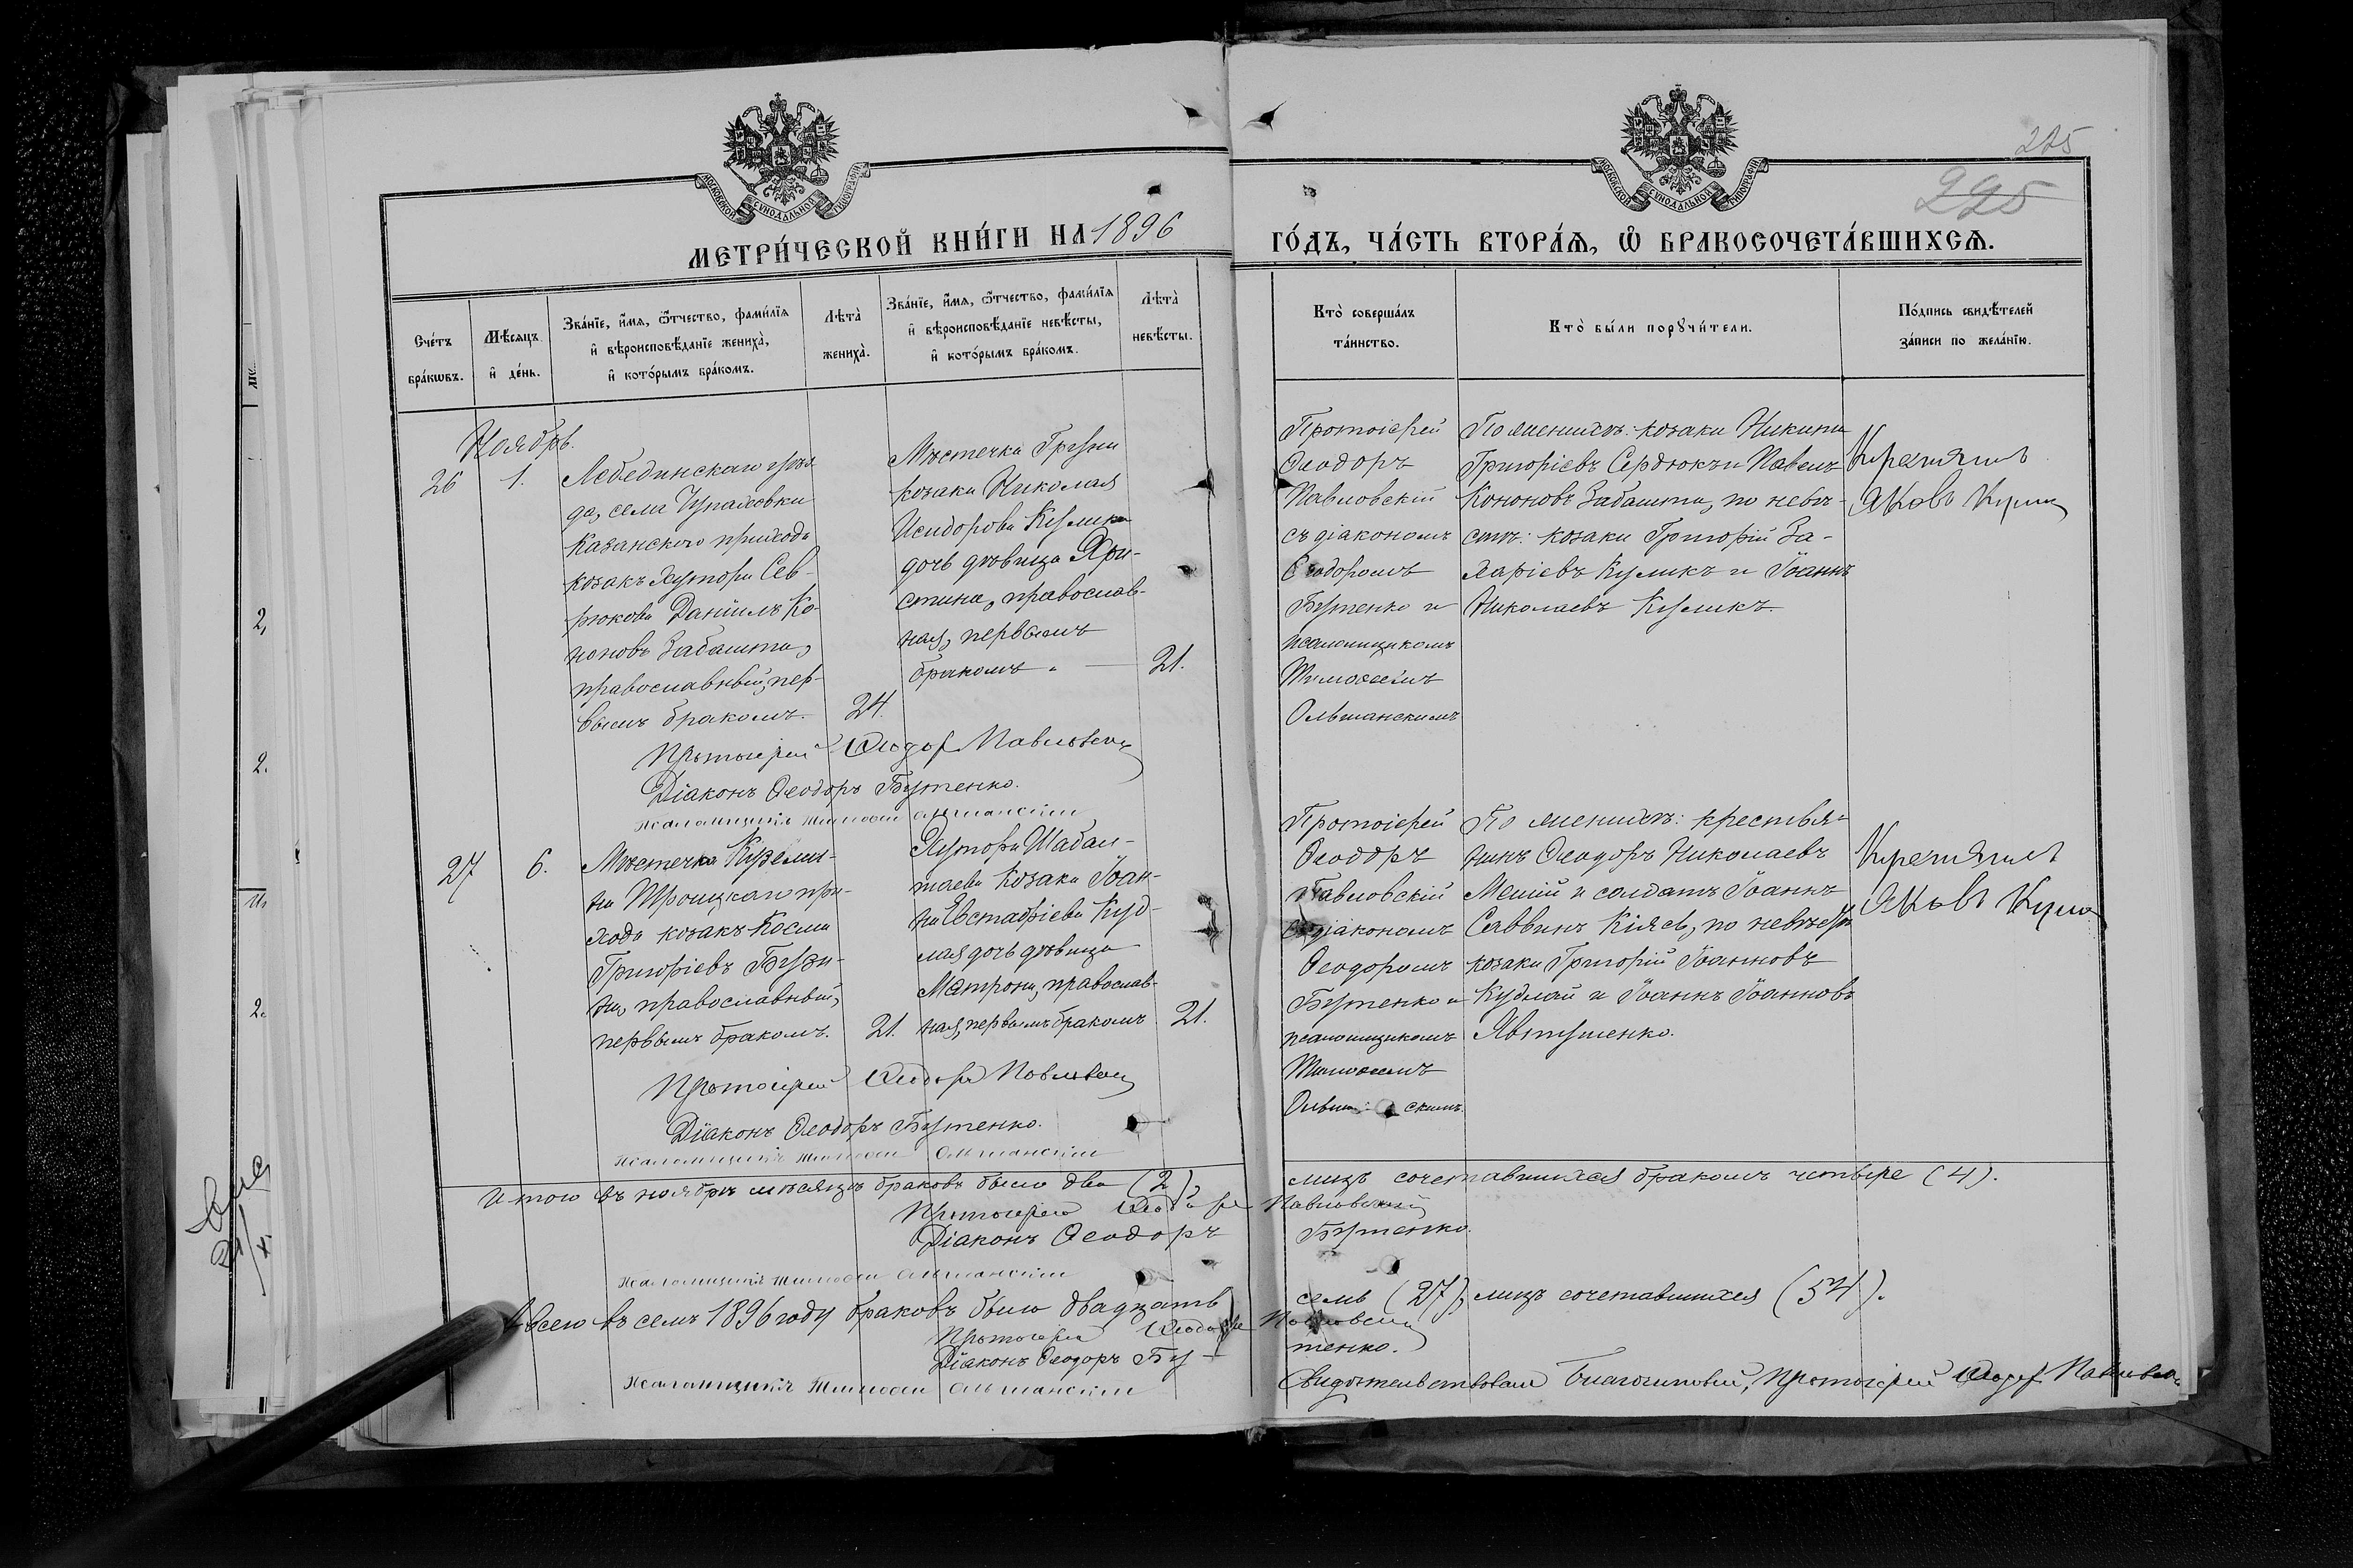 225
225
МОСКОВСКОЙ СѴНОДАЛЬНОЙ ТИПОГРАФІИ
МОСКОВСКОЙ СѴНОДАЛЬНОЙ ТИПОГРАФІИ
МЕТРИ́ЧЕСКОЙ КНИ́ГИ НА 1896
ГО́ДЪ, ЧА́СТЬ ВТОРА́Ѧ, Ѡ҆ БРАКОСОЧЕТА́ВШИХСѦ.
Сче́тъ
бра́кѡвъ.
Мѣ́сяцъ
и҆ де́нь.
Зва́нїе, и҆́мѧ, ѻ҆́тчество, фами́лїѧ
и҆ вѣроисповѣ́данїе жениха̀,
и҆ кото́рымъ бра́комъ.
Лѣ́та
жениха̀.
Зва́нїе, и҆́мѧ, ѻ҆́тчество, фами́лїѧ
и҆ вѣроисповѣ́данїе невѣ́сты,
и҆ кото́рымъ бра́комъ.
Лѣ́та
невѣ́сты.
Кто̀ соверша́лъ
та́инство.
Кто̀ бы́ли порꙋчи́тели.
По́дпись свидѣ́телей
за́писи по жела́нїю.
Ноябрь.
26
1.
Лебединскаго уѣз-
да, села Чупаховки
Казанскаго прихода
козакъ хутора Сев-
рюкова Даніилъ Ко-
ноновъ Забашта,
православный, пер-
вымъ бракомъ.
24.
Мѣстечка Груни
козака Николая
Исидорова Кулика
дочь дѣвица Хри-
стина, православ-
ная, первымъ
бракомъ. —
21.
Протоіерей
Ѳеодоръ
Павловскій
съ діакономъ
Ѳеодоромъ
Бутенко и
псаломщикомъ
Тимоѳеемъ
Ольшанскимъ
По женихѣ: козаки Никита
Григоріевъ Сердюкъ и Павелъ
Кононовъ Забашта, по невѣ-
стѣ: козаки Григорій За-
харіевъ Куликъ и Іоаннъ
Николаевъ Куликъ.
Яковъ
Протоіерей Ѳеодоръ Павловскій
Діаконъ Ѳеодоръ Бутенко.
Псаломщикъ Тимоѳей Ольшанскій
27
6.
Мѣстечка Куземи-
на Троицкаго при-
хода козакъ Косма
Григоріевъ Бузи-
на, православный,
первымъ бракомъ.
21.
Хутора Шабал-
таева козака Іоан-
на Евстафіева Куд-
лая дочь дѣвица
Матрона, православ-
ная, первымъ бракомъ
21.
Протоіерей
Ѳеодоръ
Павловскій
съ діакономъ
Ѳеодоромъ
Бутенко и
псаломщикомъ
Тимоѳеемъ
Ольшанскимъ.
По женихѣ: крестья-
нинъ Ѳеодоръ Николаевъ
и солдатъ Іоаннъ
Саввинъ по невѣстѣ
козаки Григорій Іоанновъ
Кудлай и Іоаннъ Іоанновъ
Явтушенко.
Яковъ
Протоіерей Ѳеодоръ Павловскій
Діаконъ Ѳеодоръ Бутенко.
Псаломщикъ Тимоѳей Ольшанскій
Итого въ ноябрѣ мѣсяцѣ браковъ было два (2), лицъ сочетавшихся бракомъ четыре (4).
Протоіерей Ѳеодоръ Павловскій
Діаконъ Ѳеодоръ Бутенко.
Псаломщикъ Тимоѳей Ольшанскій
А всего въ семъ 1896 году браковъ было двадцать семь (27), лицъ сочетавшихся (54).
Протоіерей Ѳеодоръ Павловскій
Діаконъ Ѳеодоръ Бутенко.
Псаломщикъ Тимоѳей Ольшанскій
Свидѣтельствовалъ Благочинный, Протоіерей Ѳеодоръ Павловскій
2,
2.
2.